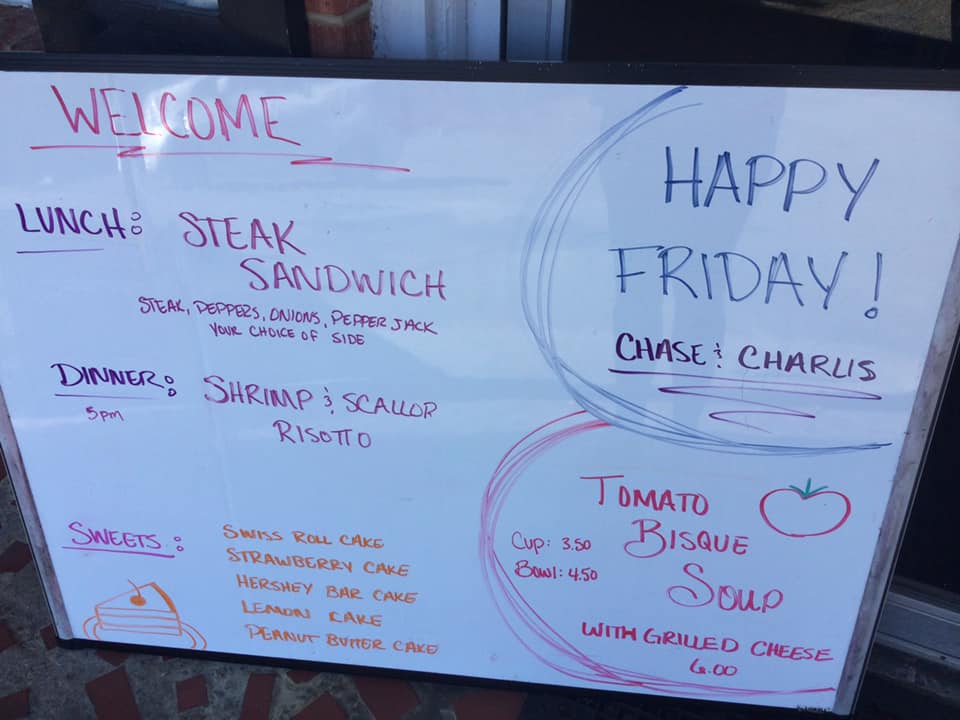 WELCOME
LUNCH: STEAK
SANDWICH
STEAK, PEPPERS, ONIONS, PEPPER JACK
YOUR CHOICE OF SIDE
DINNER: SHRIMP & SCALLOP
5pm
RISOTTO
SWEETS:
SWISS ROLL CAKE
STRAWBERRY CAKE
HERSHEY BAR CAKE
LEMON CAKE
PEANUT BUTTER CAKE
HAPPY
FRIDAY!
CHASE & CHARLIS
TOMATO
BISQUE
SOUP
CUP: 3.50
BOWL: 4.50
WITH GRILLED CHEESE
6.00